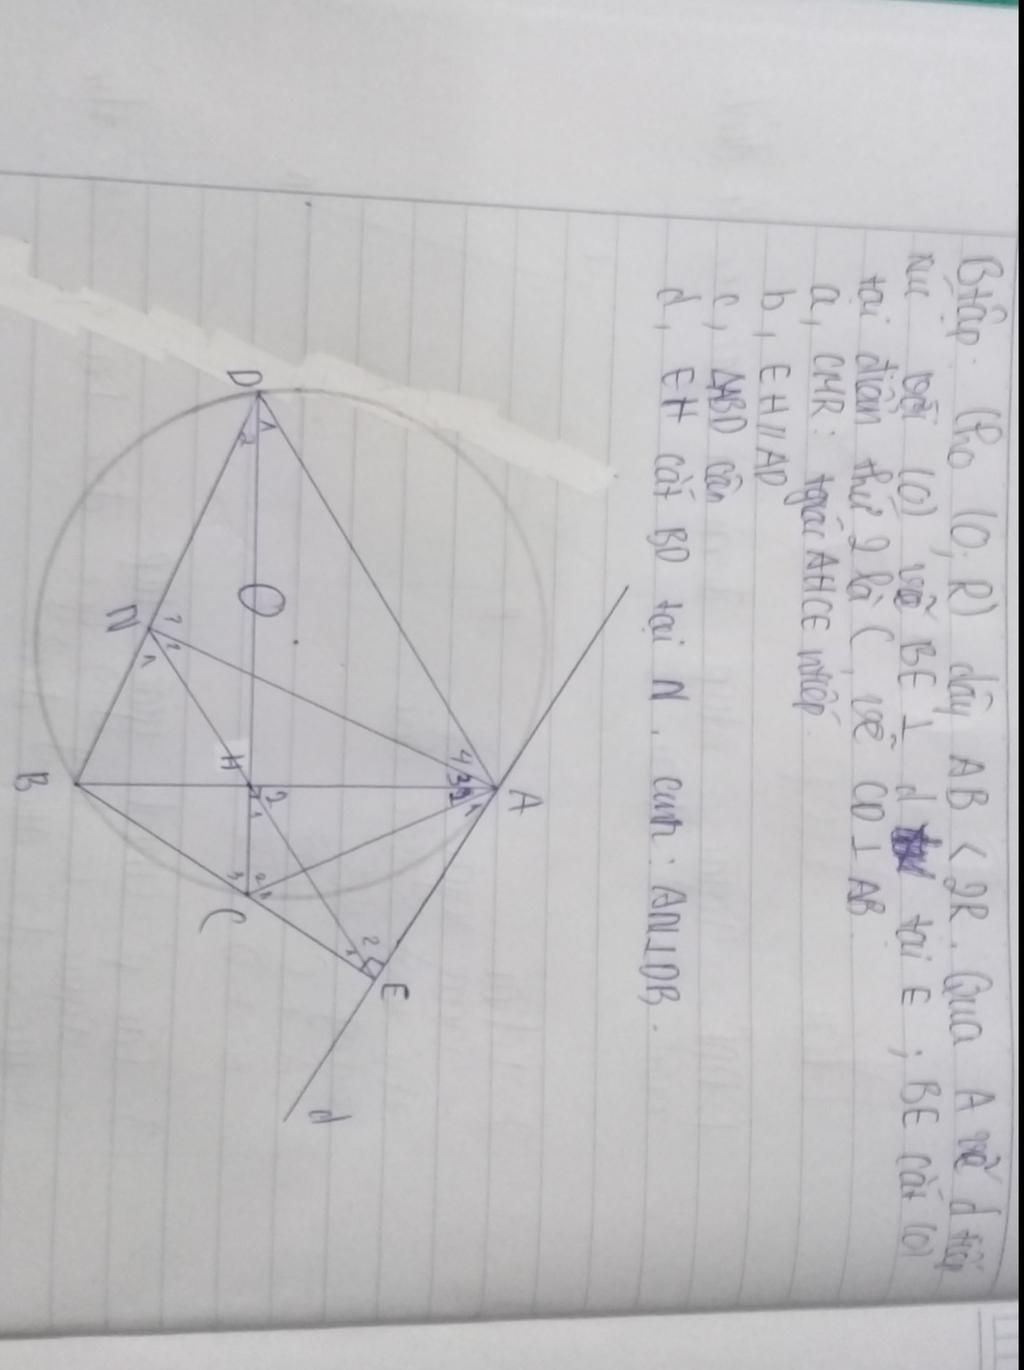 Btập: Cho (O; R) dây AB < 2R. Qua A vẽ d tiếp
xúc với (O) vẽ BE ⊥ d tại E ; BE cắt (O)
tại điểm thứ 2 là C, vẽ CD ⊥ AB
a, CMR: tgiác AHCE ntiếp.
b, EH // AD
c, ΔABD cân
d, EH cắt BD tại N. cm: AN ⊥ DB.
A
4 3 2 1
d
E
2 1
D
1
2
O
H
2
1
C
3 2 1
N
1 2
1
B